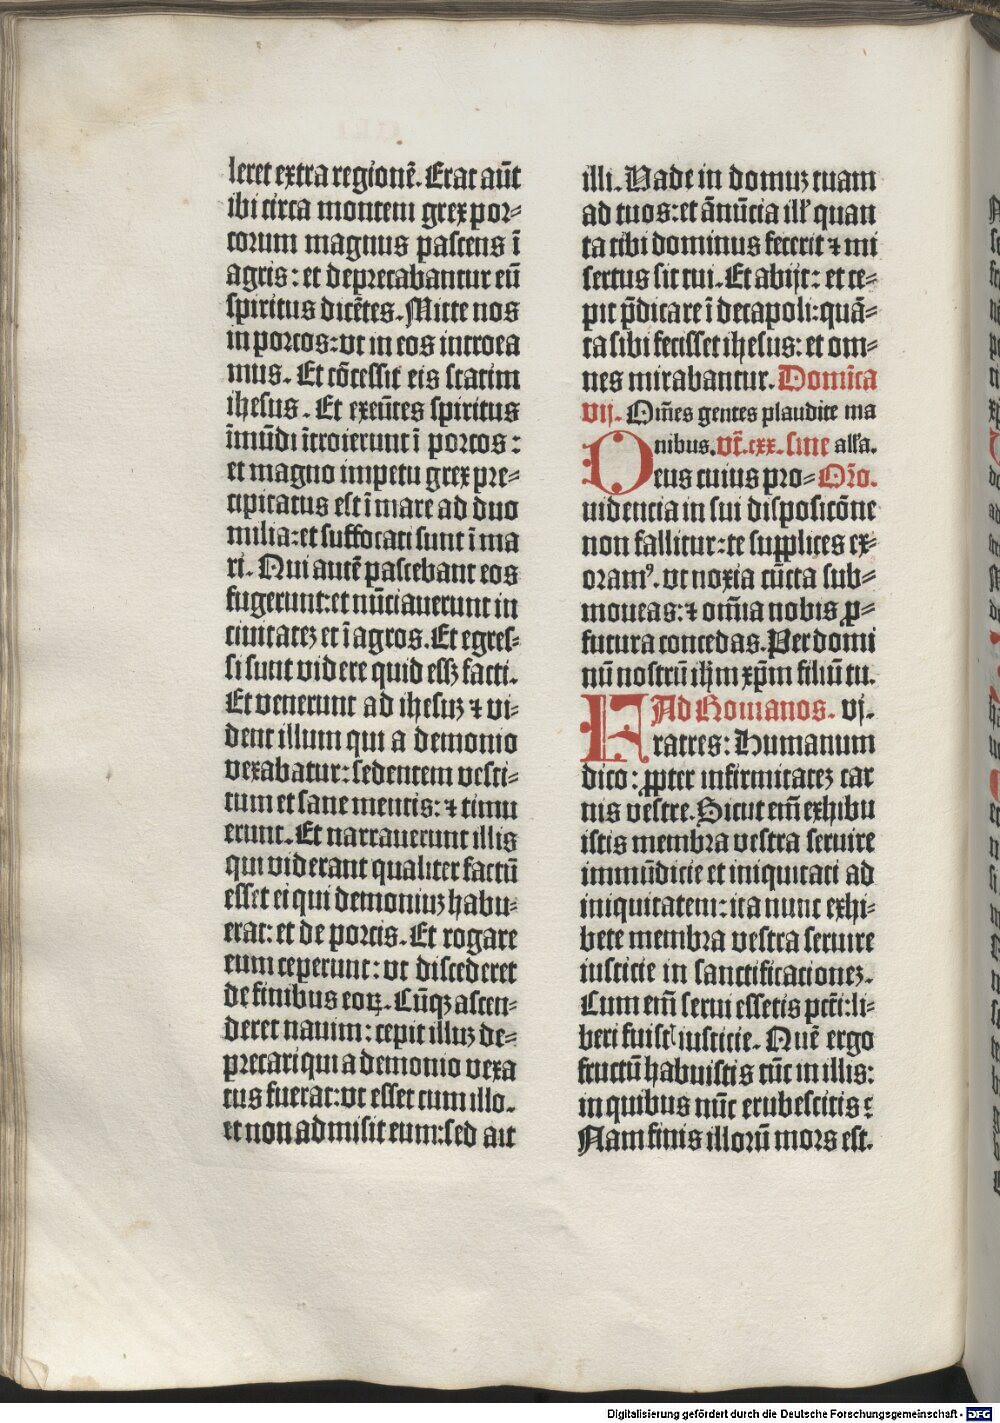 leret extra regionē. Erat aūt
ibi circa montem grex por⸗
corum magnus pascens ī
agris: et deprecabantur eū
spiritus dicētes. Mitte nos
in porcos: vt in eos introea
mus. Et cōcessit eis statim
ihesus. Et exeūtes spiritus
īmūdi ītroierunt ī porcos:
et magno impetu grex pre⸗
cipitatus est ī mare ad duo
milia: et suffocati sunt ī ma
ri. Qui autē pascebant eos
fugerunt: et nūciauerunt in
ciuitatez et ī agros. Et egres⸗
si sunt videre quid essz facti.
Et venerunt ad ihesuz ⁊ vi⸗
dent illum qui a demonio
vexabatur: sedentem vesti⸗
tum et sane mentis: ⁊ timu
erunt. Et narrauerunt illis
qui viderant qualiter factū
esset ei qui demoniuz habu⸗
erat: et de porcis. Et rogare
eum ceperunt: vt discederet
de finibus eoꝝ. Cūqz ascen⸗
deret nauim: cepit illuz de⸗
precari qui a demonio vexa
tus fuerat: vt esset cum illo.
et non admisit eum: sed ait
illi. Vade in domuz tuam
ad tuos: et ānūcia ill' quan
ta tibi dominus fecerit ⁊ mi
sertus sit tui. Et abijt: et ce⸗
pit p̄dicare ī decapoli: quā⸗
ta sibi fecisset ihesus: et om⸗
nes mirabantur. Domīca
vij. Om̄es gentes plaudite ma
nibus. vt̄. cxx. sine all'a.
Deus cuius pro⸗ Or̄o.
uidencia in sui disposicōne
non fallitur: te supplices ex⸗
oramꝰ. vt noxia cūcta sub⸗
moueas: ⁊ om̄ia nobis ꝓ⸗
futura concedas. Per domi
nū nostrū ih̄m xp̄m filiū tu.
Ad Romanos. vj.
Fratres: Humanum
dico: ꝓpter infirmitatez car
nis vestre. Sicut em̄ exhibu
istis membra vestra seruire
immūdicie et iniquitati ad
iniquitatem: ita nunc exhi⸗
bete membra vestra seruire
iusticie in sanctificacionez.
Cum em̄ serui essetis pctī: li⸗
beri fuist' iusticie. Quē ergo
fructū habuistis tūc in illis:
in quibus nūc erubescitis:
Nam finis illorū mors est.
Digitalisierung gefördert durch die Deutsche Forschungsgemeinschaft - DFG